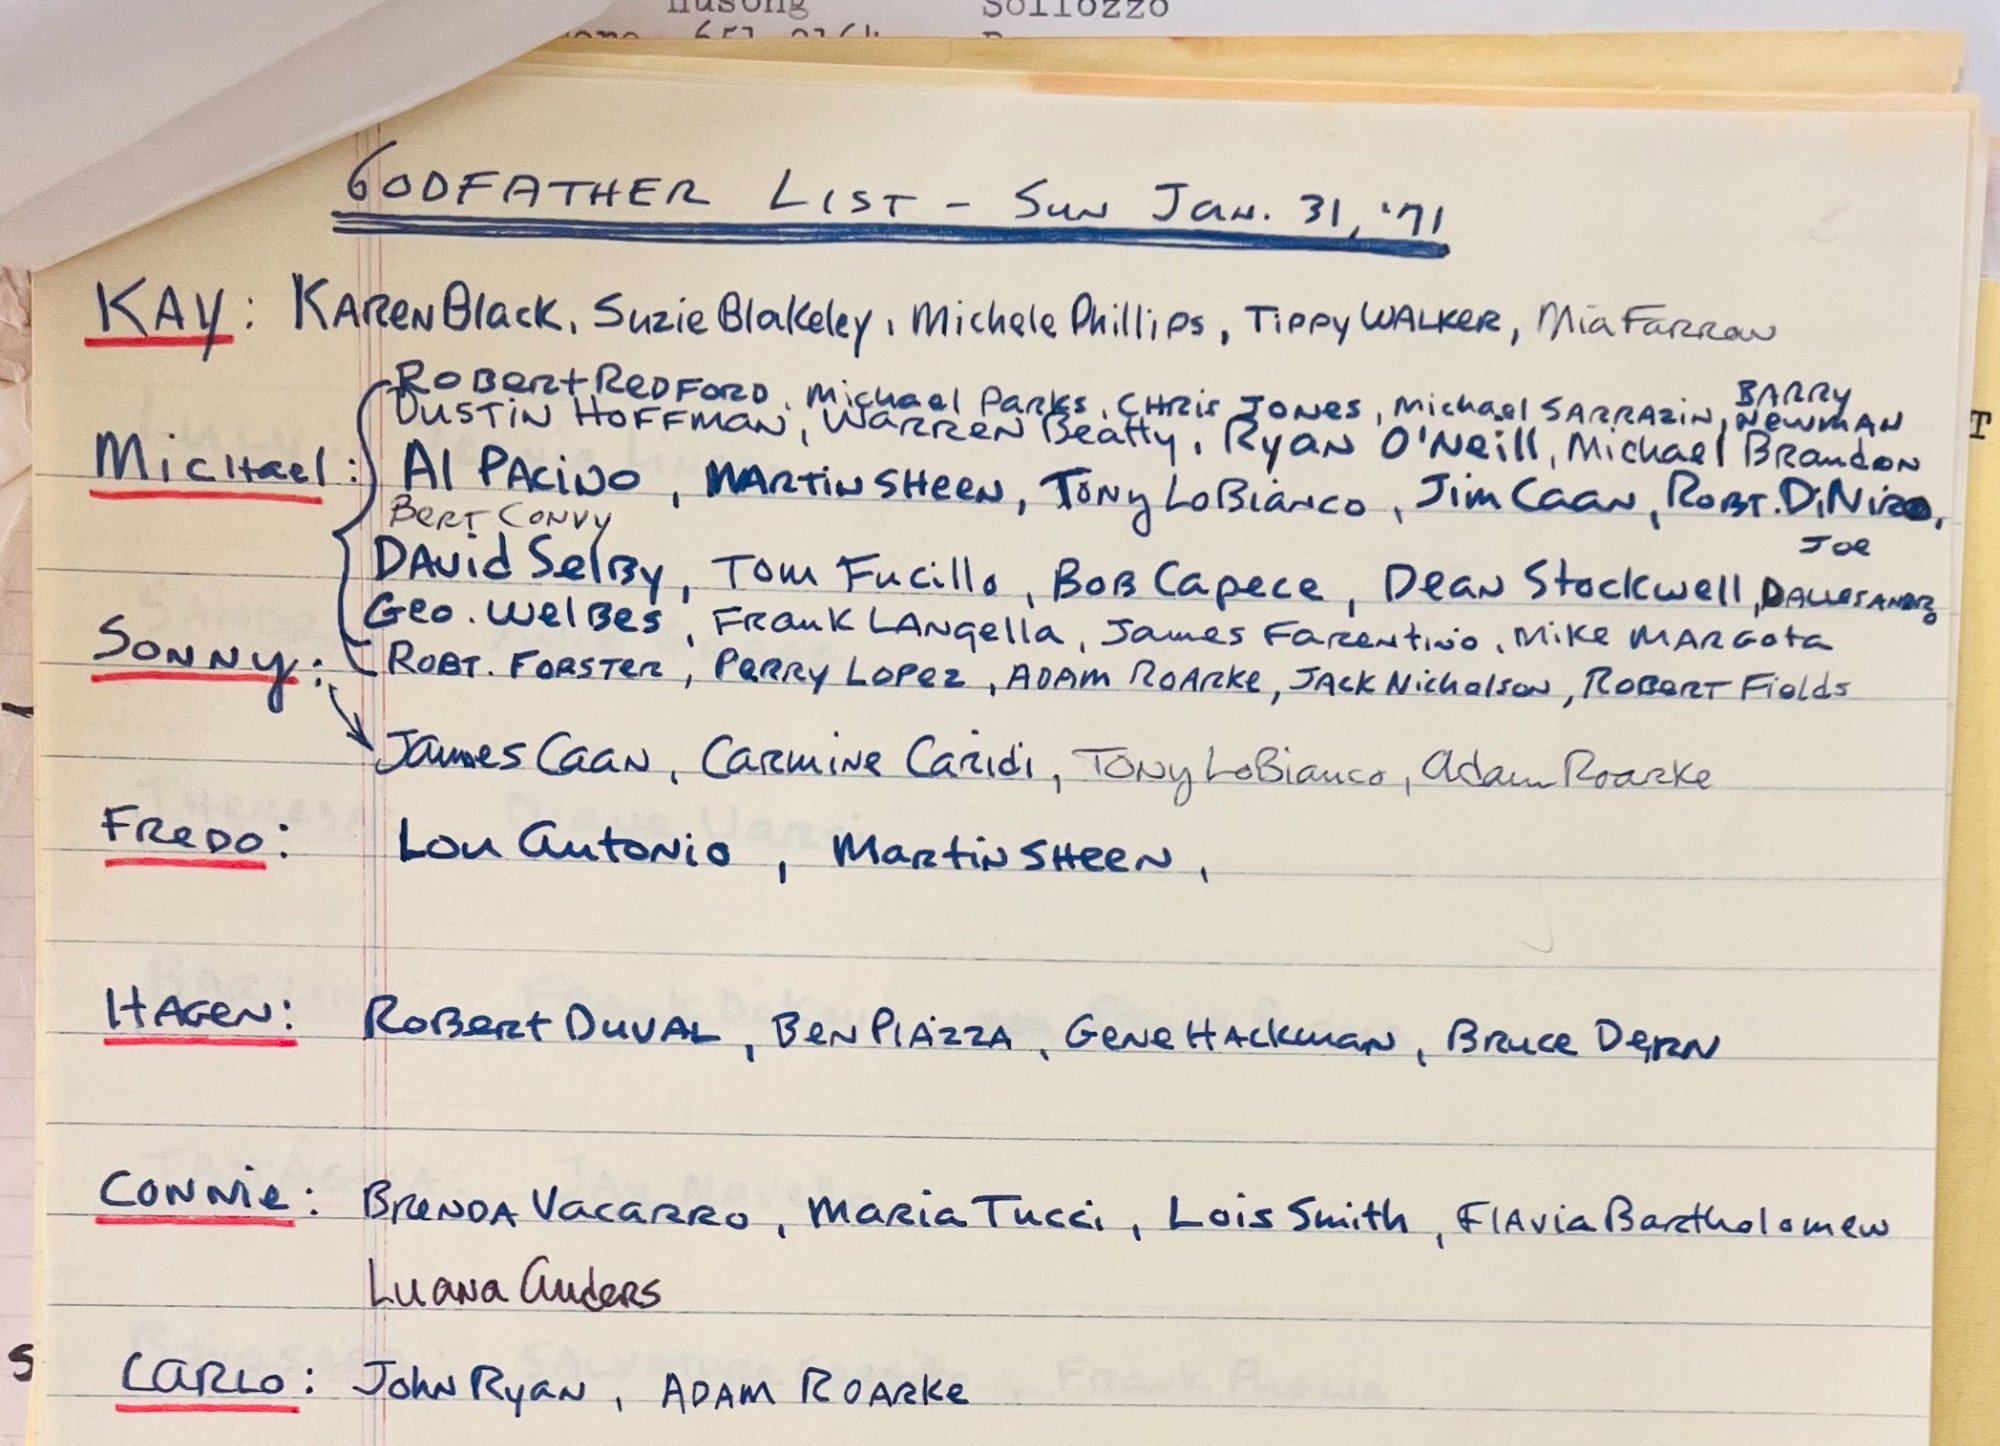 Husong Sollozzo
GODFATHER LIST - SUN JAN. 31, '71
KAY: KAREN Black, Suzie Blakeley, Michele Phillips, Tippy WALKER, Mia FARROW
ROBERT REDFORD, Michael Parks, CHRIS JONES, Michael SARRAZIN, BARRY NEWMAN
DUSTIN HOFFMAN, WARREN Beatty, Ryan O'Neill, Michael Brandon
Michael: Al PACINO, MARTIN SHEEN, TONY LoBianco, Jim CAAN, ROBT. DiNiro,
BERT CONVY
DAVID SelBy, Tom Fucillo, BOB Capece, DEAN Stockwell, JOE DALLESANDRO
Geo. WelBes, FRANK LANgella, James FARENTINO, Mike MARGOTA
SONNY: ROBT. FORSTER, PERRY LOPEZ, ADAM ROARKE, JACK Nicholson, ROBERT Fields
James CAAN, CARMINE CARIDI, TONY LoBianco, Adam Roarke
FREDO: Lou Antonio, MARTIN SHEEN,
HAGEN: ROBERT DUVAL, BEN PIAZZA, GENE HACKMAN, BRUCE DERN
CONNIE: BRENDA VACARRO, MARIA TUCCI, Lois Smith, FLAVIA Bartholomew
LUANA Anders
CARLO: John Ryan, ADAM ROARKE